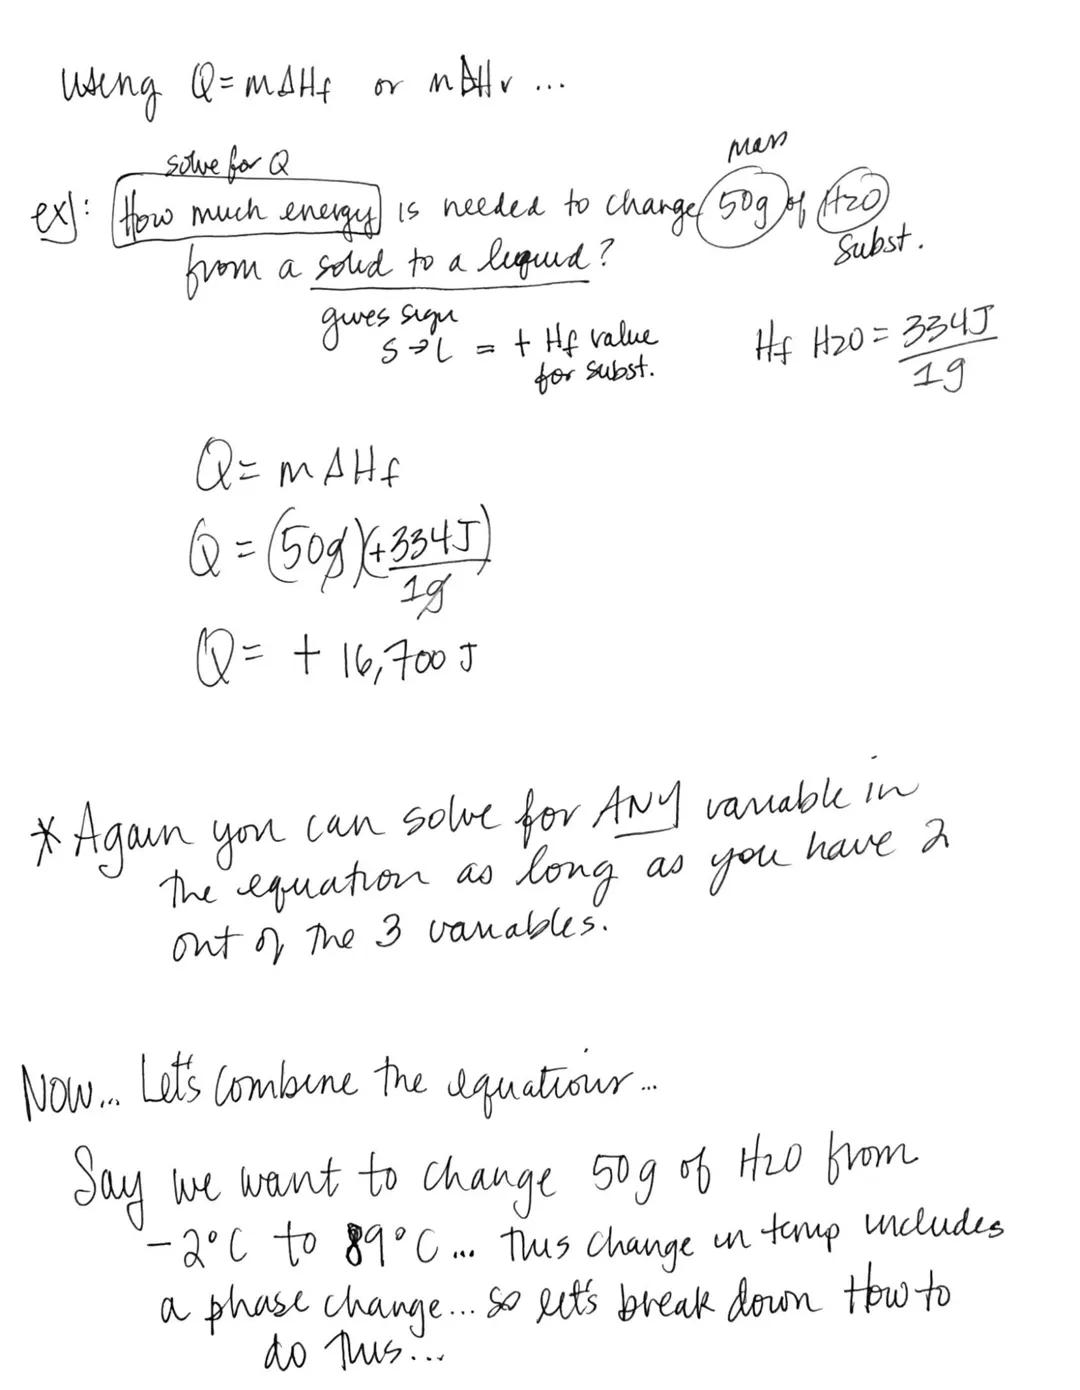 using Q = m∆Hf or m∆Hv ...
solve for Q
mass
ex]: How much energy is needed to change 50g of H2O
Subst.
from a solid to a liquid?
gives sign
S→L = + Hf value
for subst.
Hf H2O = 334J
1g
Q = m∆Hf
Q = (50g)(+334J)
1g
Q = + 16,700 J
* Again you can solve for ANY variable in
the equation as long as you have 2
out of the 3 variables.
Now... Let's combine the equations...
Say we want to change 50g of H2O from
-2°C to 89°C... this change in temp includes
a phase change... so let's break down how to
do this...